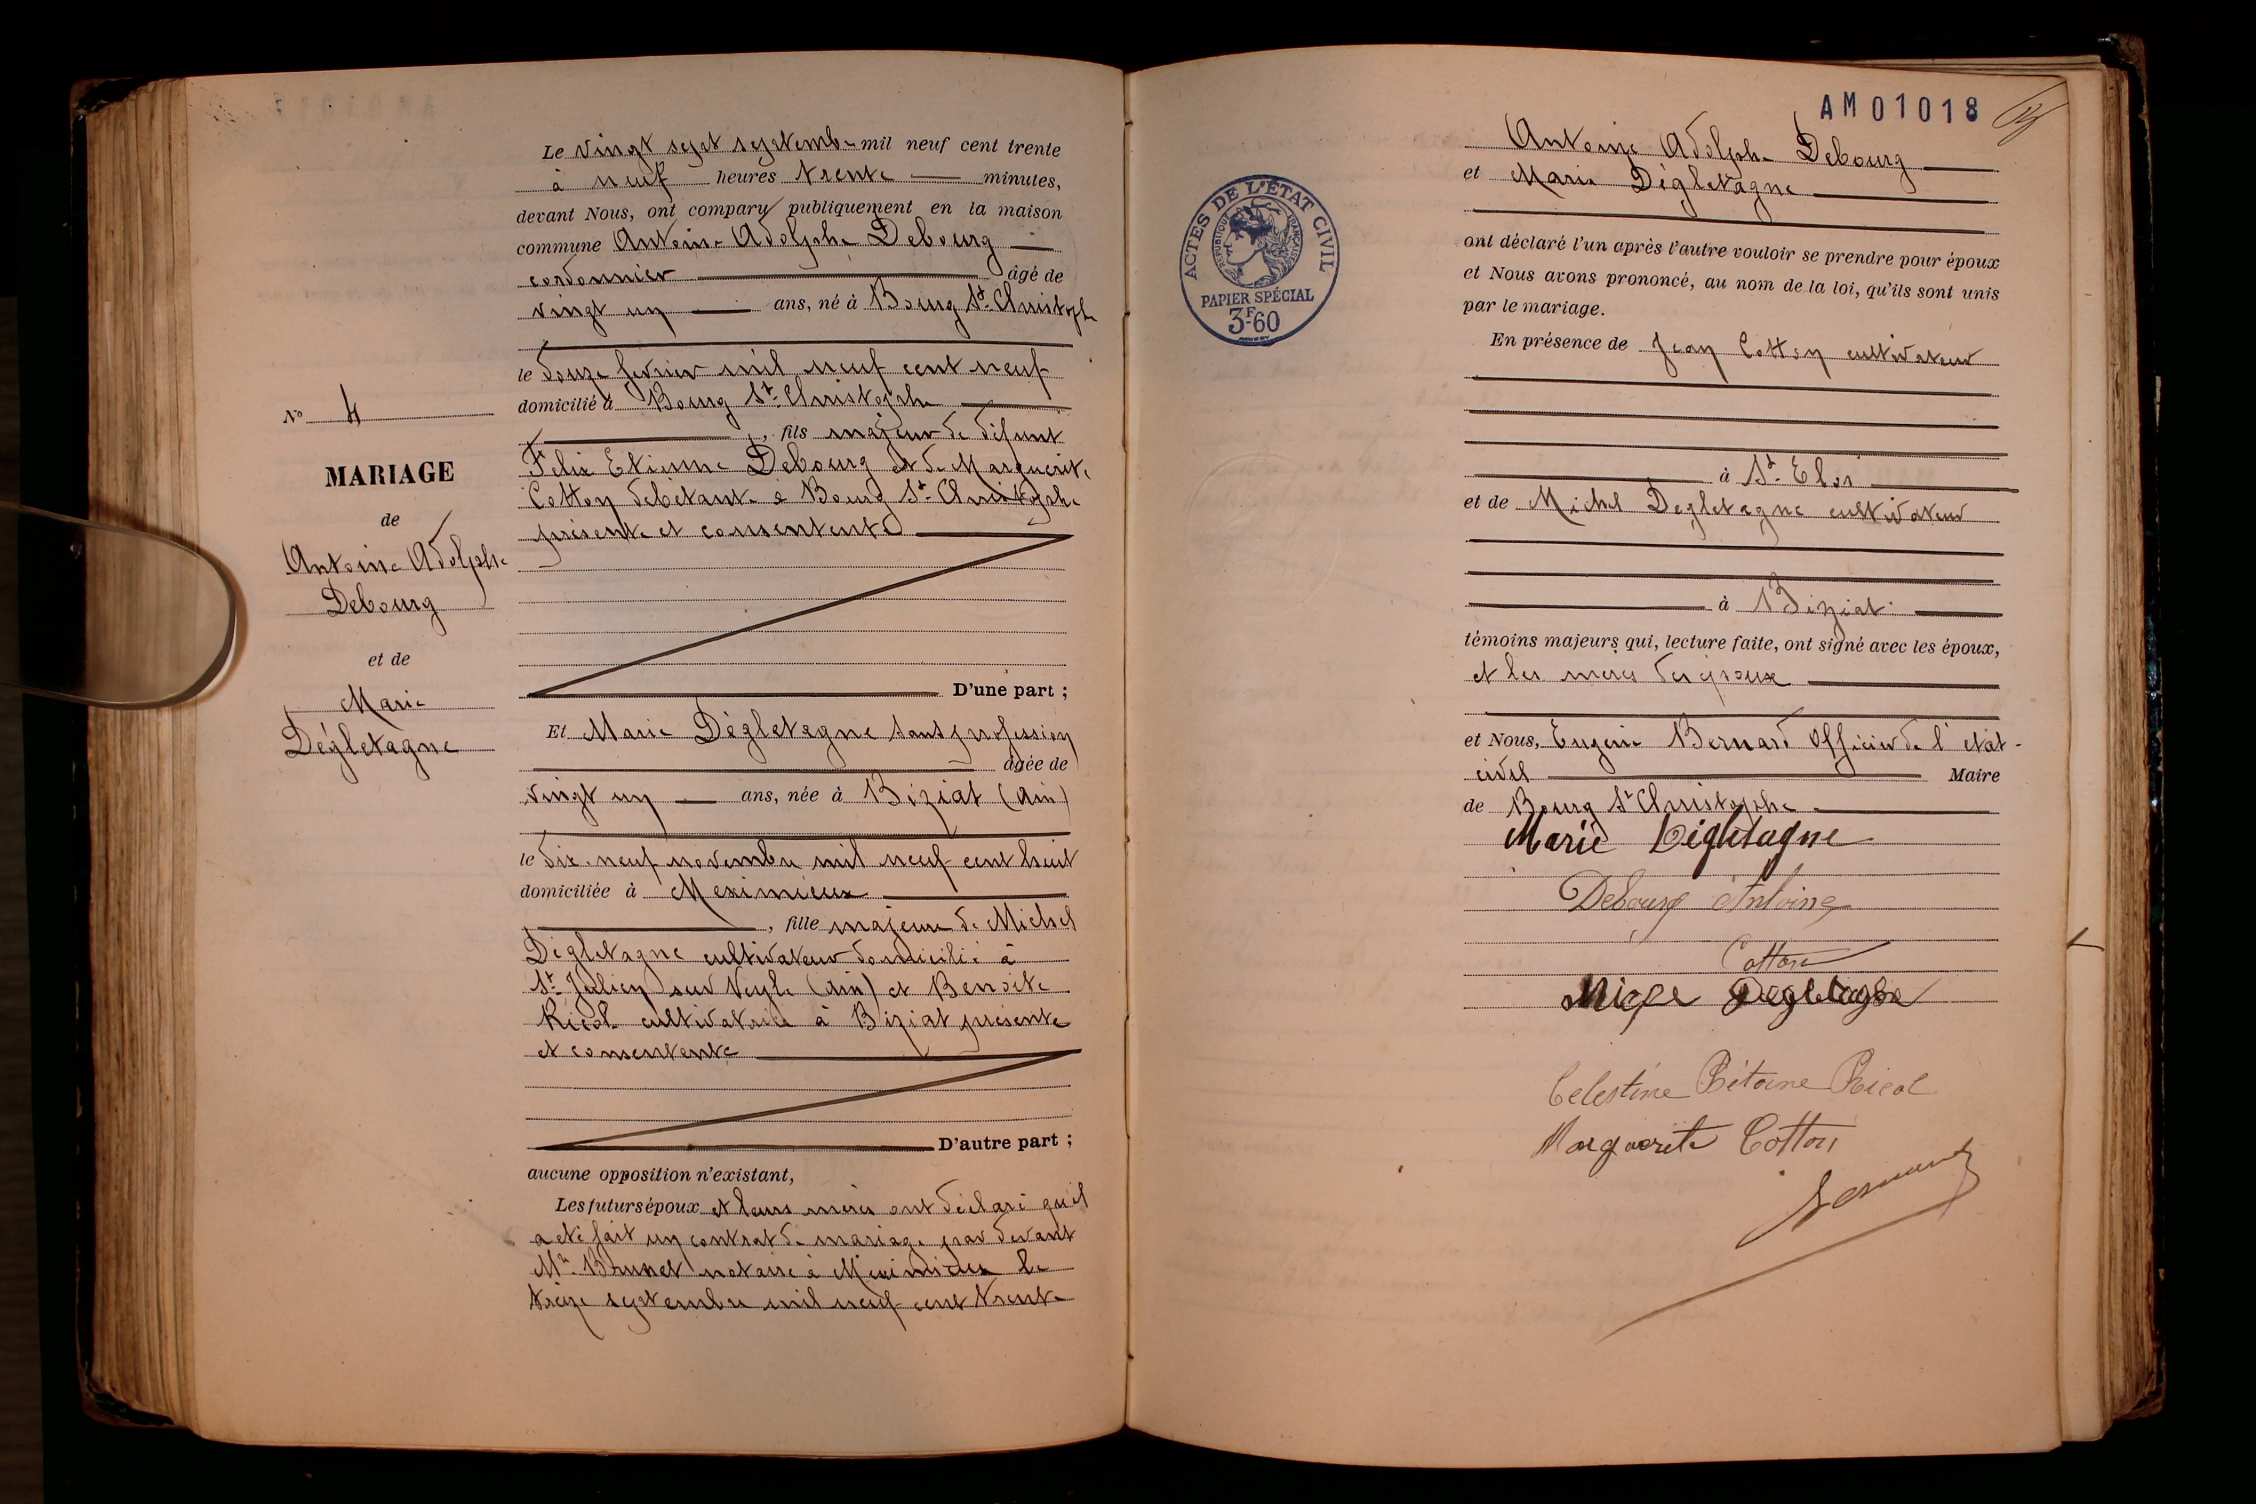 Le vingt sept septembre mil neuf cent trente
à neuf heures trente minutes,
devant Nous, ont comparu publiquement en la maison
commune Antoine Adolphe Debourg
cordonnier âgé de
vingt un ans, né à Bourg St. Christophe
le douze fevrier mil neuf cent neuf
domicilié à Bourg St. Christophe
, fils majeur de défunt
Felix Etienne Debourg et de Marguerite
Cotton debitante à Bourg St. Christophe
présente et consentente
D'une part ;
No 4
MARIAGE
de
Antoine Adolphe
Debourg
et de
Marie
Dégletagne
Et Marie Dégletagne sans profession
âgée de
vingt un ans, née à Biziat (Ain)
le dix-neuf novembre mil neuf cent huit
domiciliée à Meximieux
, fille majeure de Michel
Dégletagne cultivateur domicilié à
St. Julien sur Veyle (ain) et Benoite
Ricol cultivatrice à Biziat présente
et consentente
D'autre part ;
aucune opposition n'existant,
Les futurs époux et leurs mères ont déclaré qu'il
a été fait un contrat de mariage par devant
Me. Brunet notaire à Meximieux le
treize septembre mil neuf cent trente
AM01018
ACTES DE L'ÉTAT CIVIL
RÉPUBLIQUE FRANÇAISE
PAPIER SPÉCIAL
3F60
Antoine Adolphe Debourg
et Marie Dégletagne
ont déclaré l'un après l'autre vouloir se prendre pour époux
et Nous avons prononcé, au nom de la loi, qu'ils sont unis
par le mariage.
En présence de Jean Cotton cultivateur
à St. Eloi
et de Michel Degletagne cultivateur
à Biziat
témoins majeurs qui, lecture faite, ont signé avec les époux,
et les mères des époux
et Nous, Eugène Bernard Officier de l'etat-
civil Maire
de Bourg St Christophe
Marie Dégletagne
Debourg Antoine
Cotton
Degletagne
Celestine Ricol
Marguerite Cotton